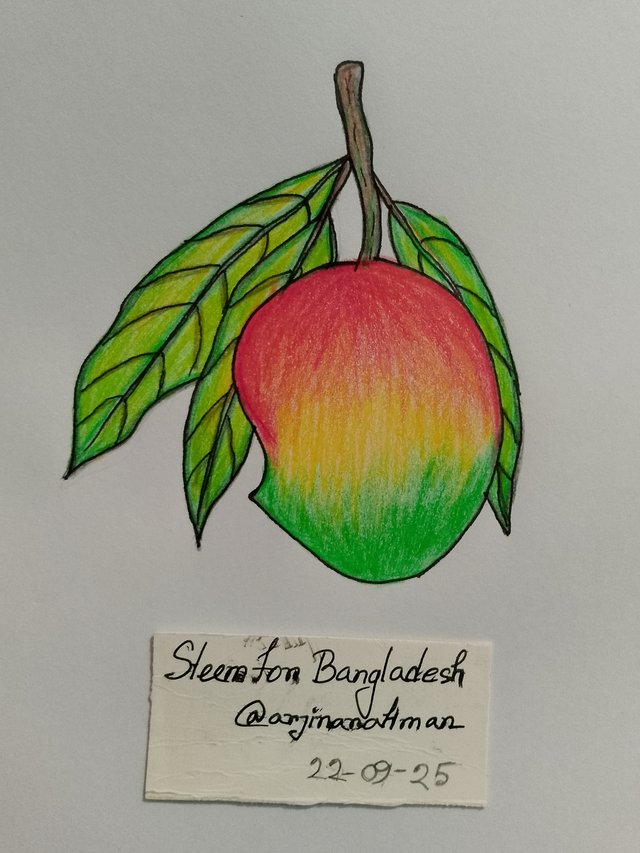 Steem For Bangladesh
@arjinarahman
22-09-25